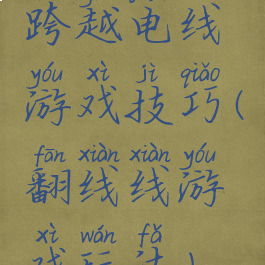 跨越电线
yóu xì jì qiǎo
游戏技巧(
fān xiàn xiàn yóu
翻线线游
xì wán fǎ
戏玩法)